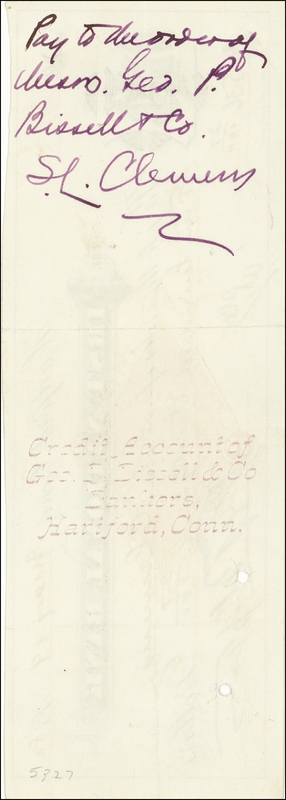 Pay to the order of
Messrs. Geo. P.
Bissell & Co.
S. L. Clemens
Credit Account of
Geo. P. Bissell & Co
Bankers,
Hartford, Conn.
5327